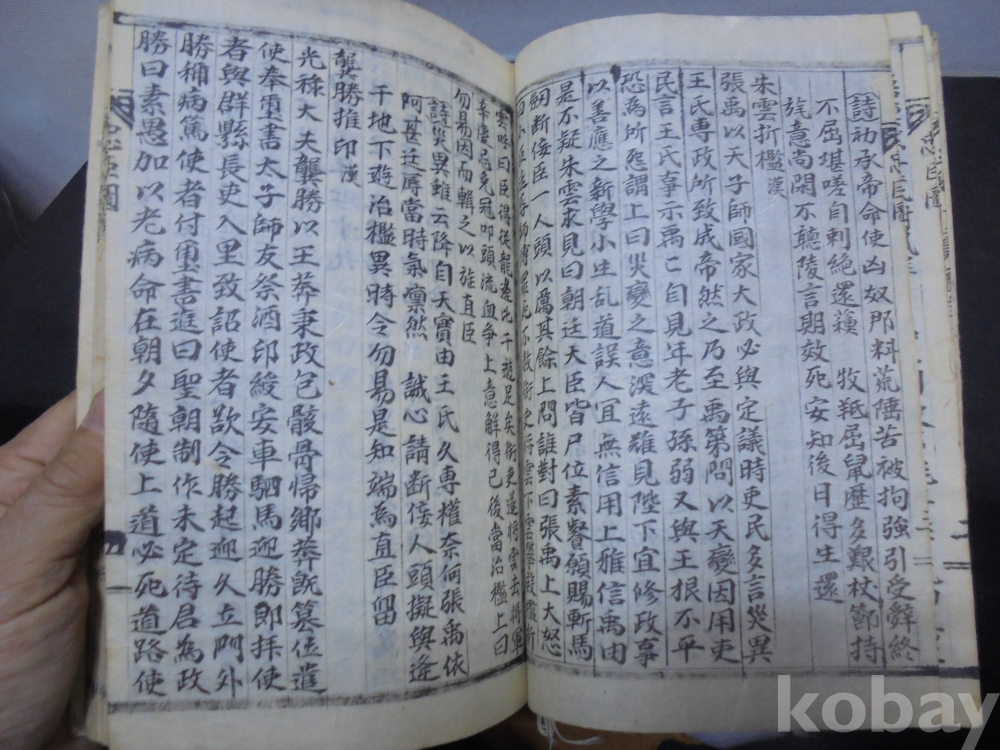 詩 初承帝命使凶奴郡料荒陲苦被拘強引受辭終
不屈堪嗟自刺絶還蘓 牧羝屈鼠歷多艱杖節持
旄意尚閑不聽陵言期效死安知後日得生還
朱雲折檻 漢
張禹以天子師國家大政必與定議時吏民多言災異
王氏專政所致成帝然之乃至禹第問以天變因用吏
民言王氏事示禹〻自見年老子孫弱又與王根不平
恐為所怨謂上曰災變之意深遠難見陛下宜修政事
以善應之新學小生乱道誤人宜無信用上雅信禹由
是不疑朱雲求見曰朝廷大臣皆尸位素餐願賜斬馬
劒断佞臣一人頭以厲其餘上問誰對曰張禹上大怒
曰小臣
雲呼曰臣得從龍逄比干遊足矣御史遂將雲去將軍
辛慶忌免冠叩頭流血争上意解得已後當治檻上曰
勿易因而輯之以旌直臣
詩 災異雖云降自天實由王氏久專權奈何張禹依
阿甚廷辱當時氣凛然 誠心請断佞人頭擬與逄
干地下遊治檻異時令勿易是知端為直臣留
龔勝推印 漢
光祿大夫龔勝以王莽秉政乞骸骨帰鄉莽既簒位遣
使奉璽書太子師友祭酒印綬安車駟馬迎勝即拜使
者與群縣長吏入里致詔使者欲令勝起迎久立門外
勝稱病篤使者付璽書進曰聖朝制作未定待君為政
勝曰素愚加以老病命在朝夕隨使上道必死道路使
kobay